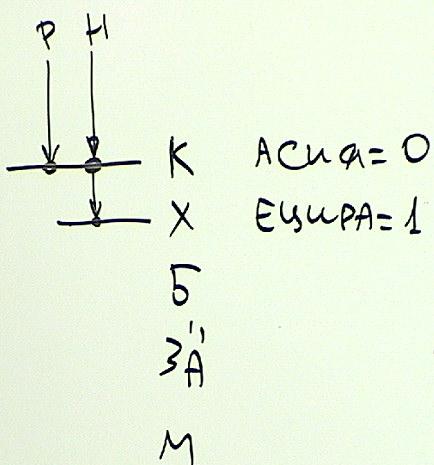 Р Н
К АСИЯ = 0
Х ЕЦИРА = 1
Б
З"А
М